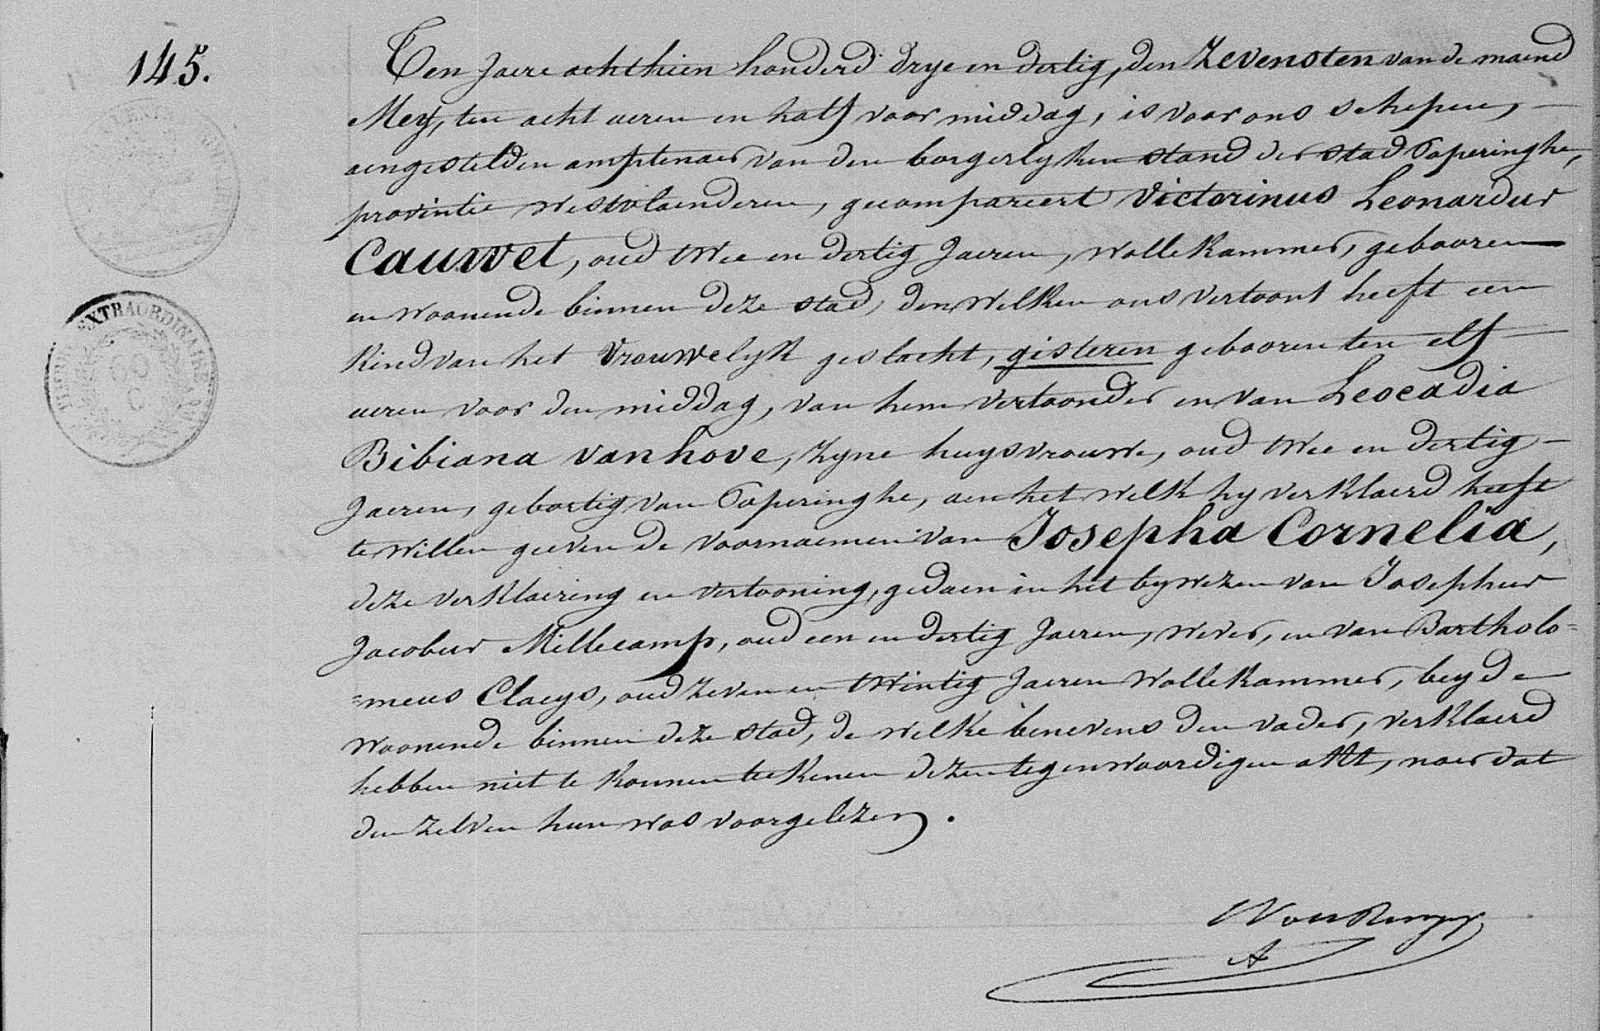 145.
Ten Jaere achthien honderd drye en dertig, den Zevensten van de maend
Mey, ten acht ueren en half voor middag, is voor ons schepen,
aengestelden amptenaer van den borgerlyken stand der stad Poperinghe,
provintie Westvlaenderen, gecompareert Victorinus Leonardus
Cauwet, oud twee en dertig Jaeren, Wollekammer, gebooren
en woonende binnen deze stad, den welken ons vertoont heeft een
Kind van het Vrouwelyk geslacht, gisteren gebooren ten elf
ueren voor den middag, van hem vertoonder en van Leocadia
Bibiana Vanhove, zyne huysvrouwe, oud twee en dertig
Jaeren, gebortig van Poperinghe, aen het welk hy verklaerd heeft
te willen geeven de voornaemen van Josepha Cornelia,
deze verklaering en vertooning, gedaen in het bywezen van Josephus
Jacobus Millecamp, oud een en dertig Jaeren, wever, en van Bartholo=
=meus Claeys, oud zeven en twintig Jaeren Wollekammer, beyde
woonende binnen deze stad, de welke benevens den vader, verklaerd
hebben niet te konnen teekenen dezen tegenwoordigen akt, naer dat
den zelven hun was voorgelezen.
EXTRAORDINAIRE
60
C